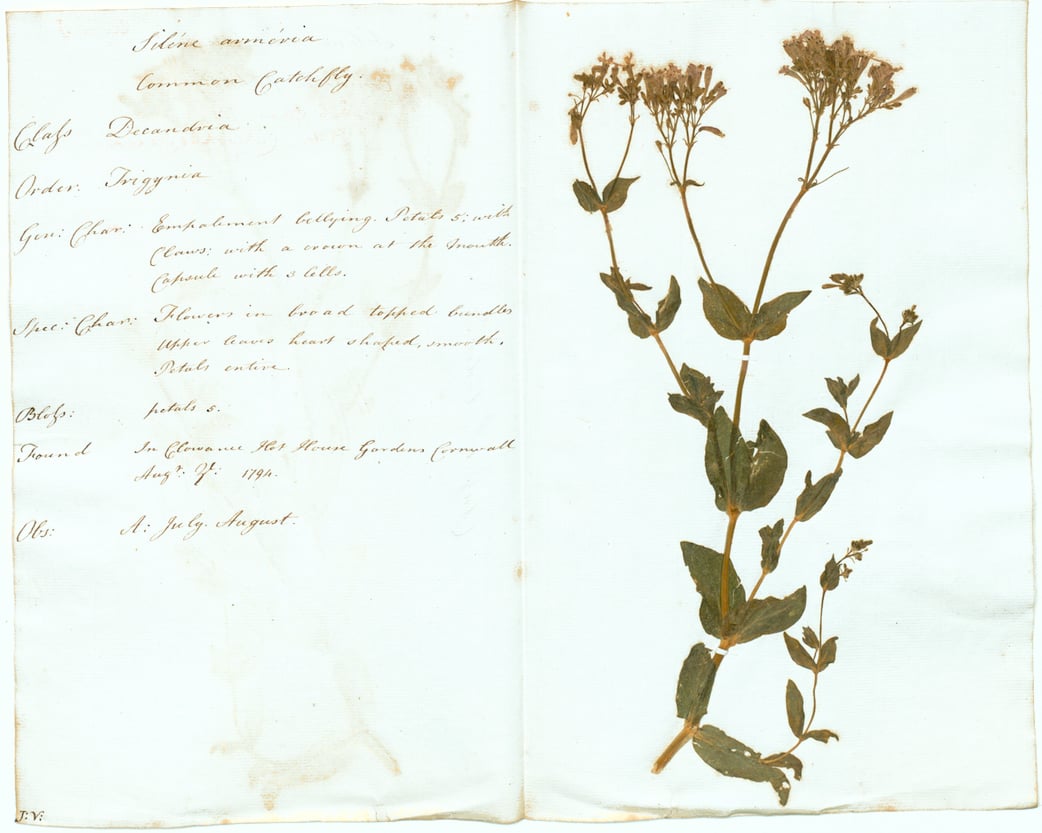 Siléne arméria
Common Catchfly.
Class Decandria
Order: Trigynia
Gen: Char: Empalement bellying. Petals 5; with
Claws; with a crown at the mouth.
Capsule with 3 Cells.
Spec: Char: Flowers in broad topped bundles
Upper leaves heart shaped, smooth,
Petals entire.
Bloss: petals 5.
Found In Clowance Hot House Gardens Cornwall
Augt: 1794.
Obs: A: July. August.
J:V: